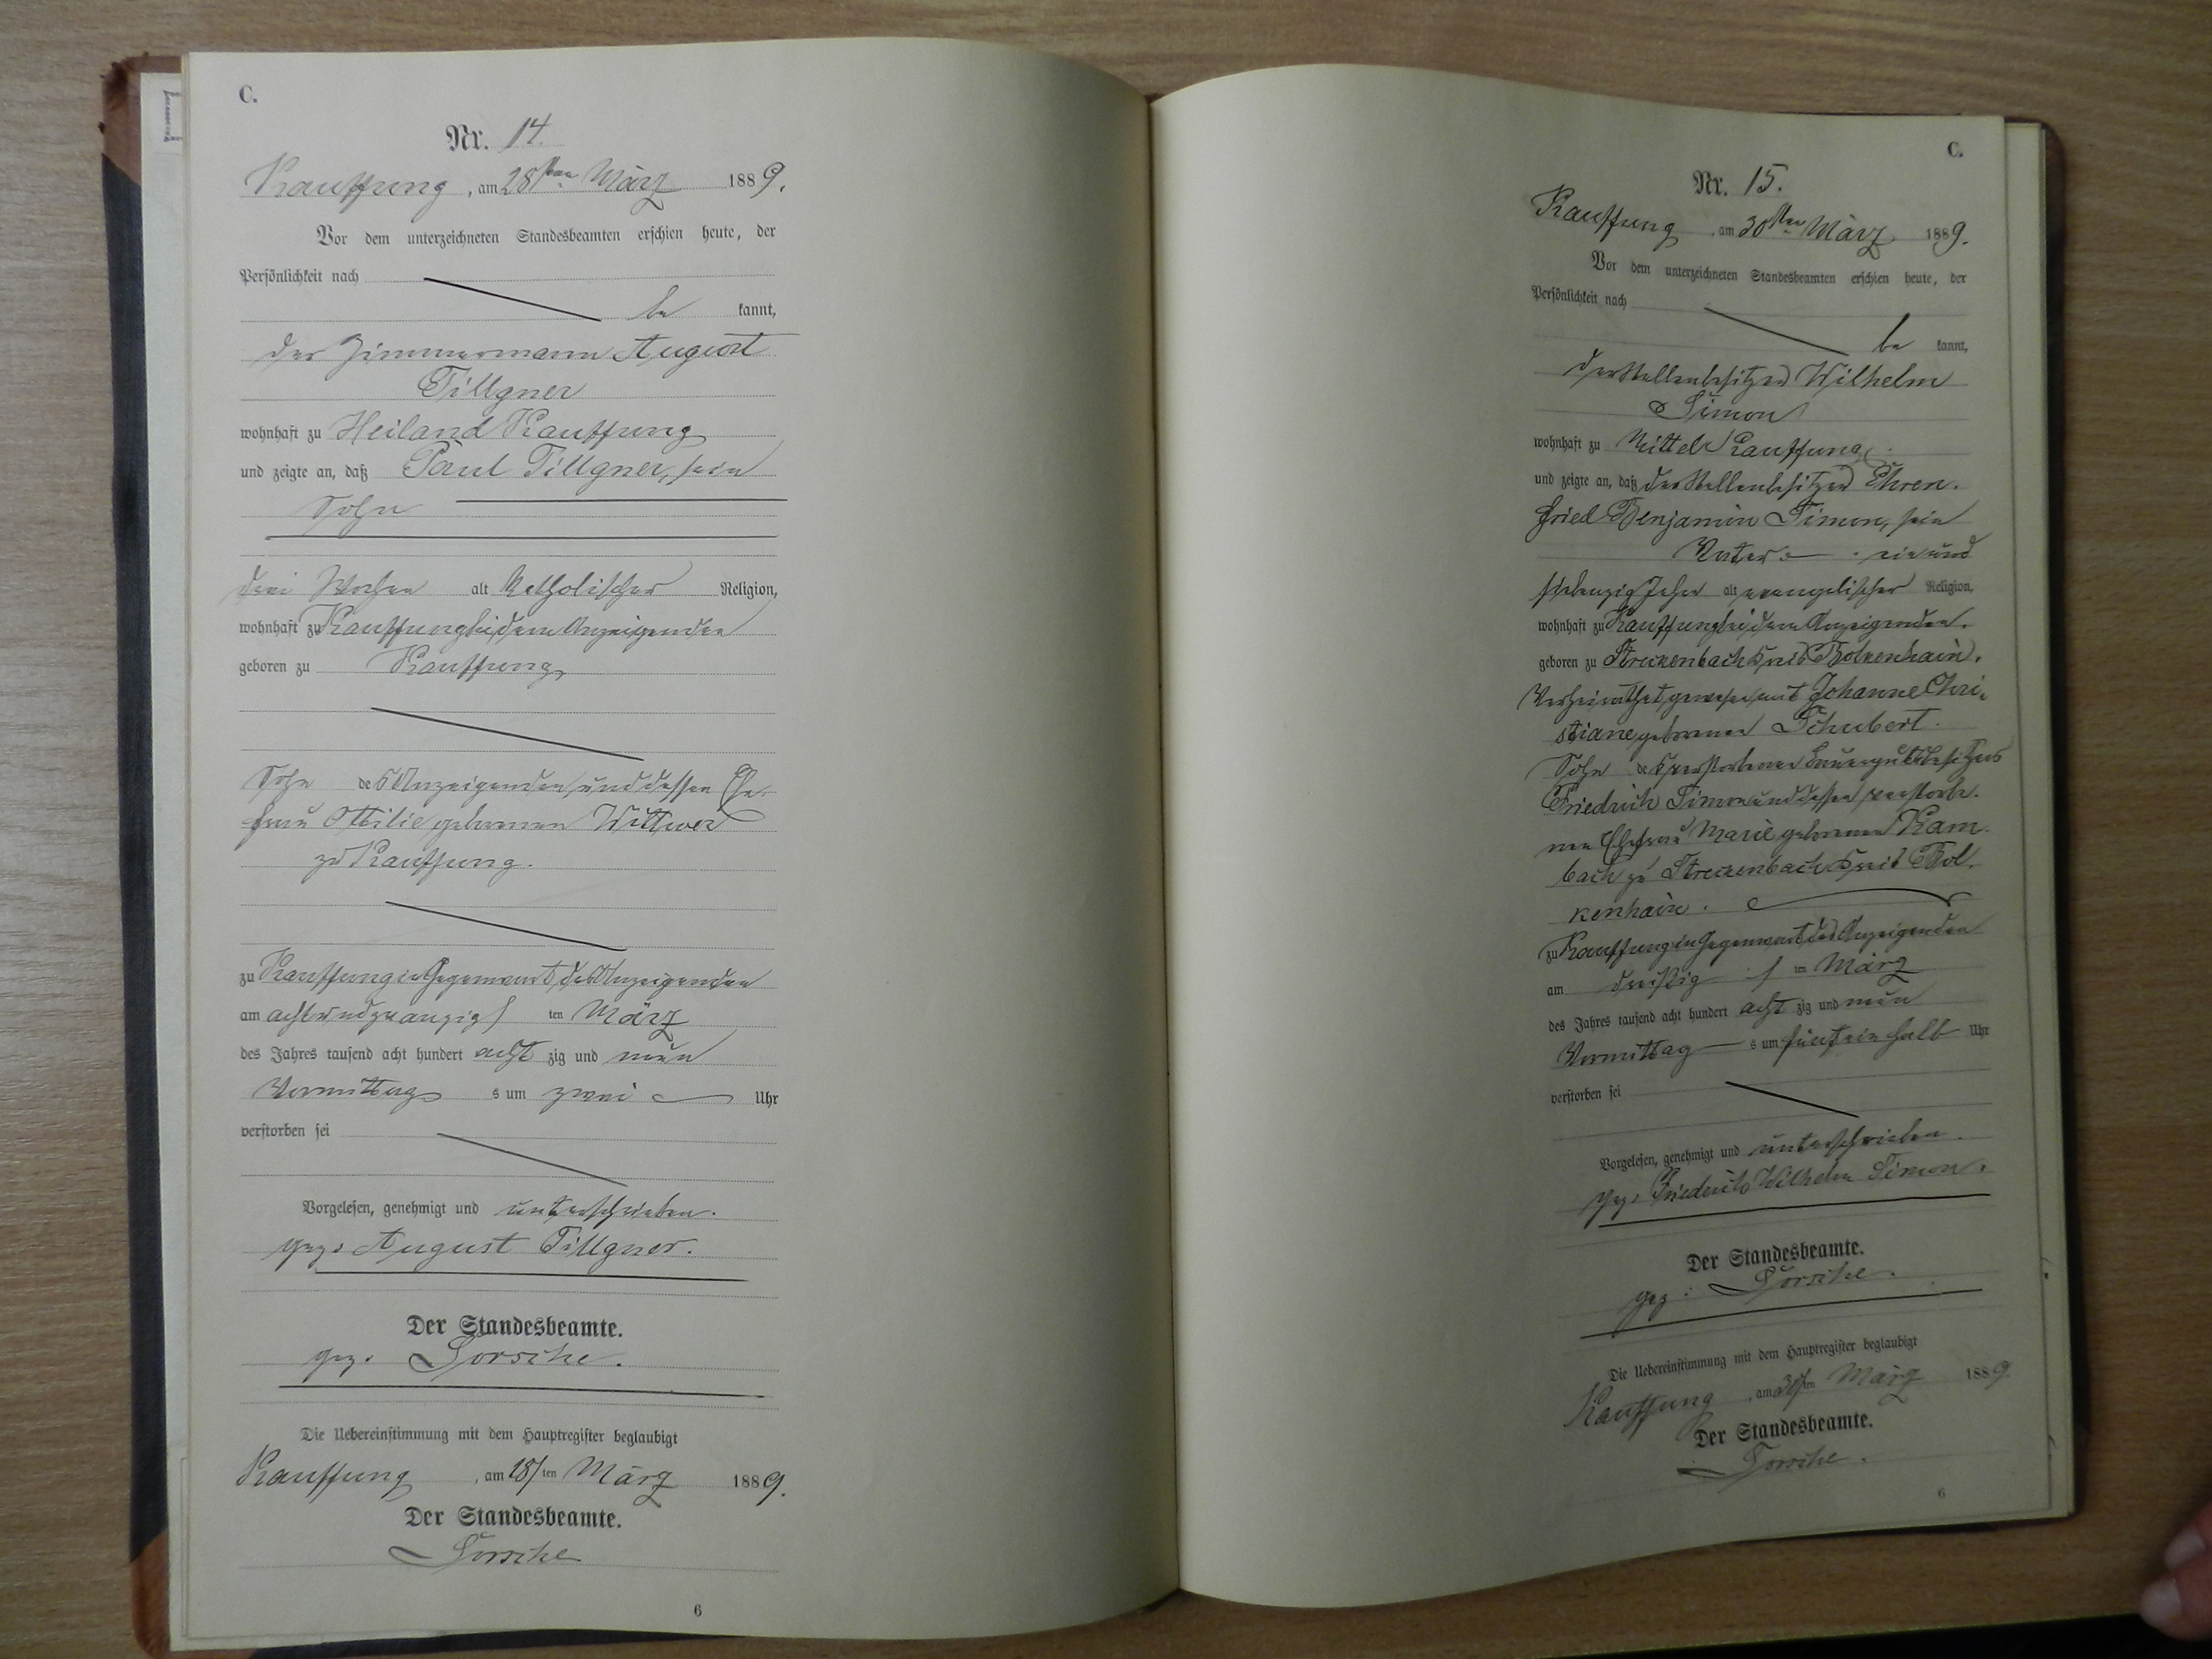 C.
Nr. 14.
Kauffung, am 28ten März 1889.
Vor dem unterzeichneten Standesbeamten erschien heute, der
Persönlichkeit nach
be kannt,
der Zimmermann August
Tillgner
wohnhaft zu Heiland Kauffung
und zeigte an, daß Paul Tillgner, sein
Sohn
drei Wochen alt katholischer Religion,
wohnhaft zu Kauffung bei dem Anzeigenden
geboren zu Kauffung
Sohn des Anzeigenden und dessen Ehe-
frau Ottilie geborenen Wittwer
zu Kauffung.
zu Kauffung in Gegenwart des Anzeigenden
am achtundzwanzigsten März
des Jahres tausend acht hundert achtzig und neun
Vormittags um zwei Uhr
verstorben sei
Vorgelesen, genehmigt und unterschrieben.
gez. August Tillgner.
Der Standesbeamte.
gez.
Die Uebereinstimmung mit dem Hauptregister beglaubigt
Kauffung, am 28ten März 1889.
Der Standesbeamte.
6
C.
Nr. 15.
Kauffung, am 30ten März 1889.
Vor dem unterzeichneten Standesbeamten erschien heute, der
Persönlichkeit nach
be kannt,
der Stellenbesitzer Wilhelm
Simon
wohnhaft zu Mittel Kauffung
und zeigte an, daß der Stellenbesitzer Ehren-
fried Benjamin Simon, sein
Vater ein und
siebenzig Jahr alt evangelischer Religion,
wohnhaft zu Kauffung bei dem Anzeigenden.
geboren zu Streckenbach Kreis Bolkenhain.
Verheirathet gewesen mit Johanne Chri-
stiane geborenen Schubert.
Sohn des verstorbenen Bauergutsbesitzers
Friedrich Simon und dessen verstorbe-
nen Ehefrau Marie geborenen Kam-
bach zu Streckenbach Kreis Bol-
kenhain.
zu Kauffung in Gegenwart des Anzeigenden
am dreißigsten März
des Jahres tausend acht hundert achtzig und neun
Vormittags um fünf ein halb Uhr
verstorben sei
Vorgelesen, genehmigt und unterschrieben.
gez. Friedrich Wilhelm Simon.
Der Standesbeamte.
gez.
Die Uebereinstimmung mit dem Hauptregister beglaubigt
Kauffung, am 30ten März 1889.
Der Standesbeamte.
6